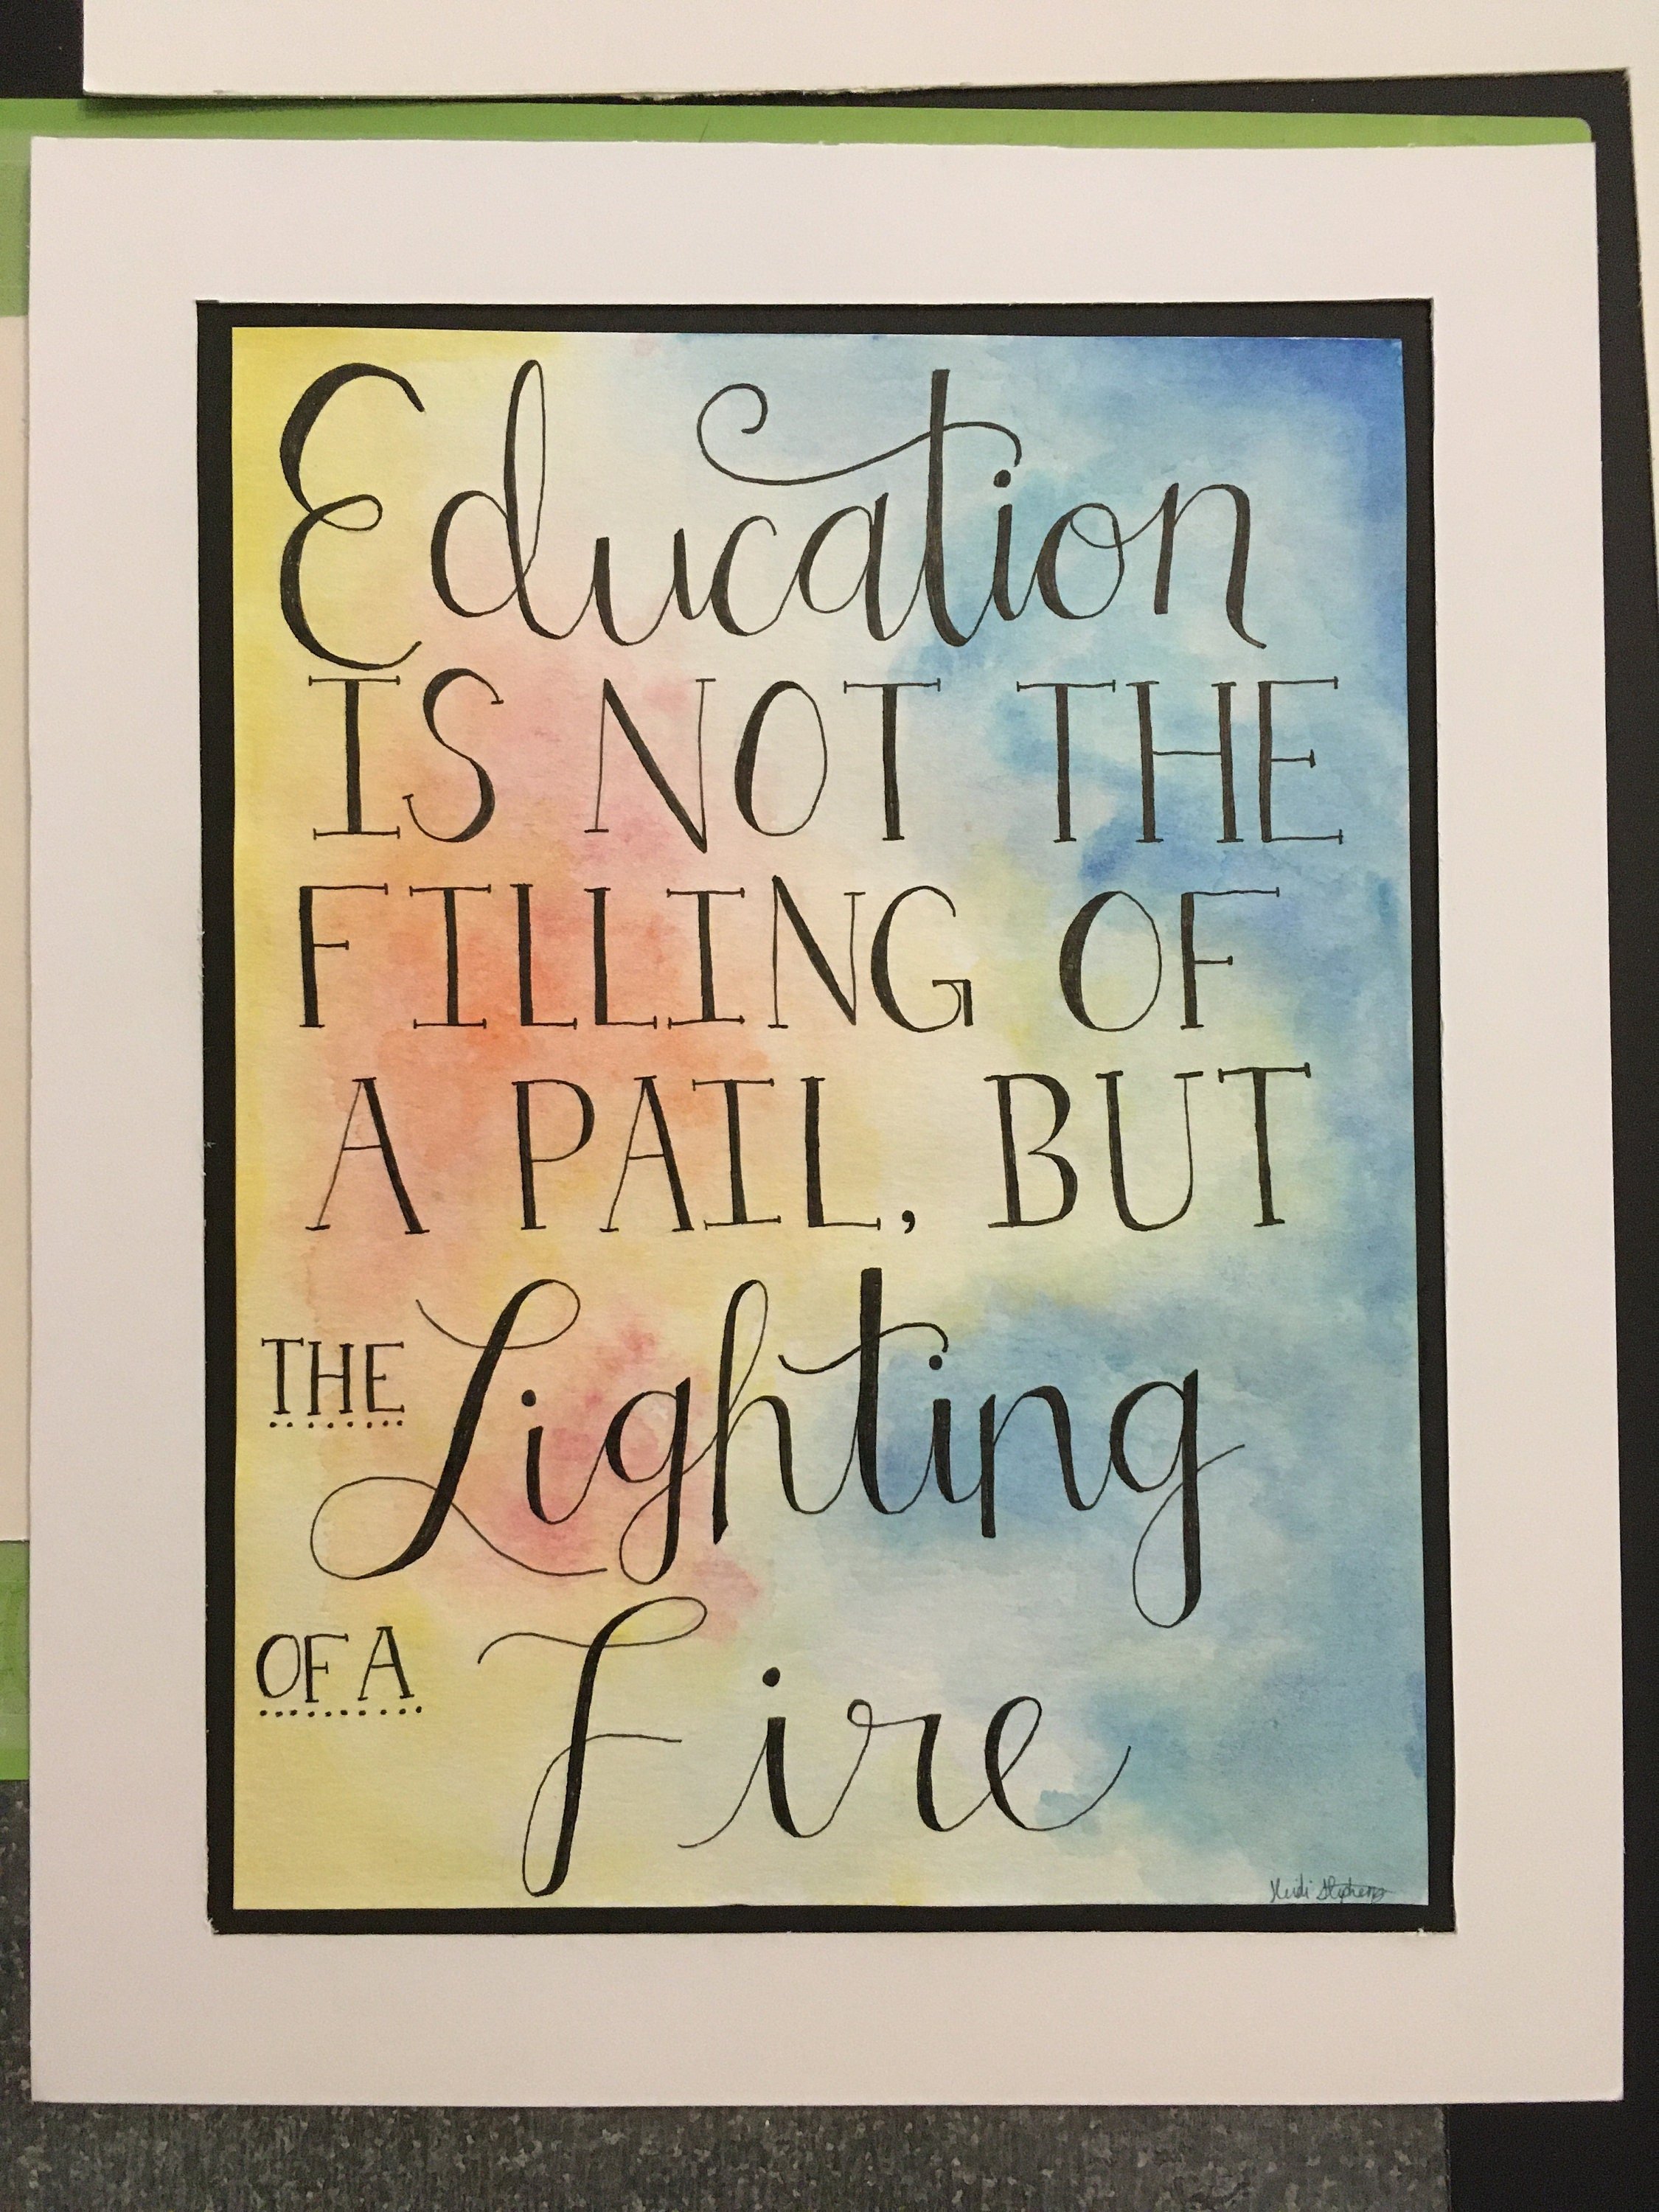 Education
IS NOT THE
FILLING OF
A PAIL, BUT
THE Lighting
OF A Fire
Heidi Stephens